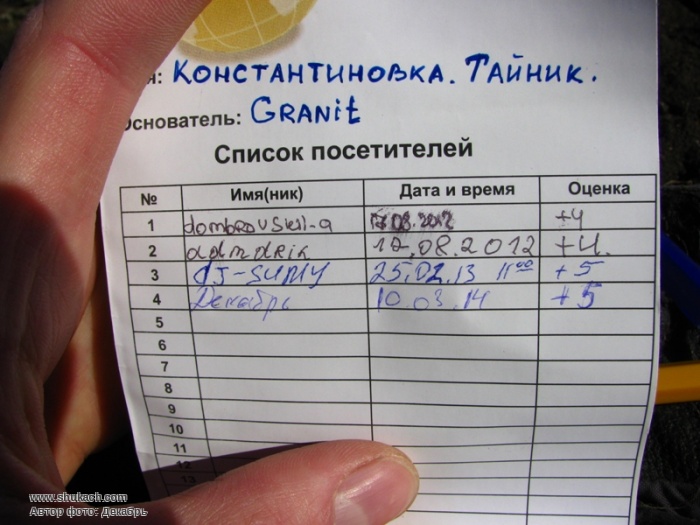 я: Константиновка. Тайник.
Основатель: Granit
Список посетителей
№ Имя(ник) Дата и время Оценка
1 dombrovskii-a 17.08.2012 +4
2 admdrik 17.08.2012 +4.
3 DJ-SUMY 25.02.13 11⁰⁰ +5
4 Декабрь 10.03.14 +5
5
6
7
8
9
10
11
12
13
www.shukach.com
Автор фото: Декабрь